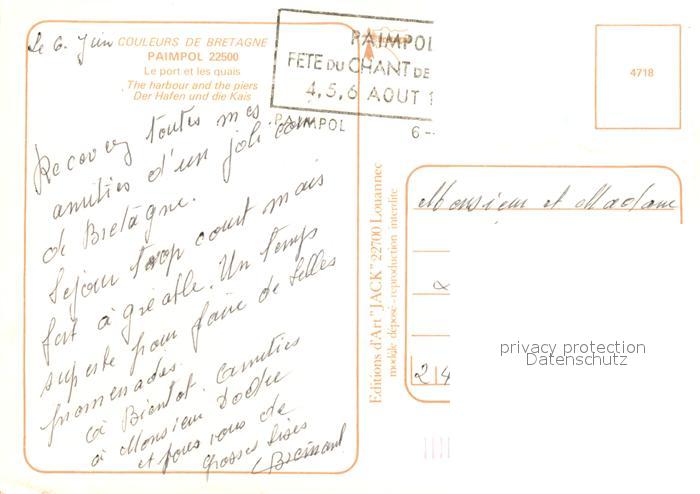 Le 6. Juin
COULEURS DE BRETAGNE
PAIMPOL 22500
Le port et les quais
The harbour and the piers
Der Hafen und die Kais
Recevez toutes mes
amitiés d'un joli coin
de Bretagne.
Sejour trop court mais
fort agréable. Un temps
superbe pour faire de belles
promenades.
à Bientot. Amities
à Monsieur
et pour vous de
grosses bises
PAIMPOL
FETE DU CHANT DE
4, 5, 6 AOUT 1
PAIMPOL
6-
Editions d'Art "JACK" 22700 Louannec
modèle déposé - reproduction interdite
4718
Monsieur et Madame
24
privacy protection
Datenschutz